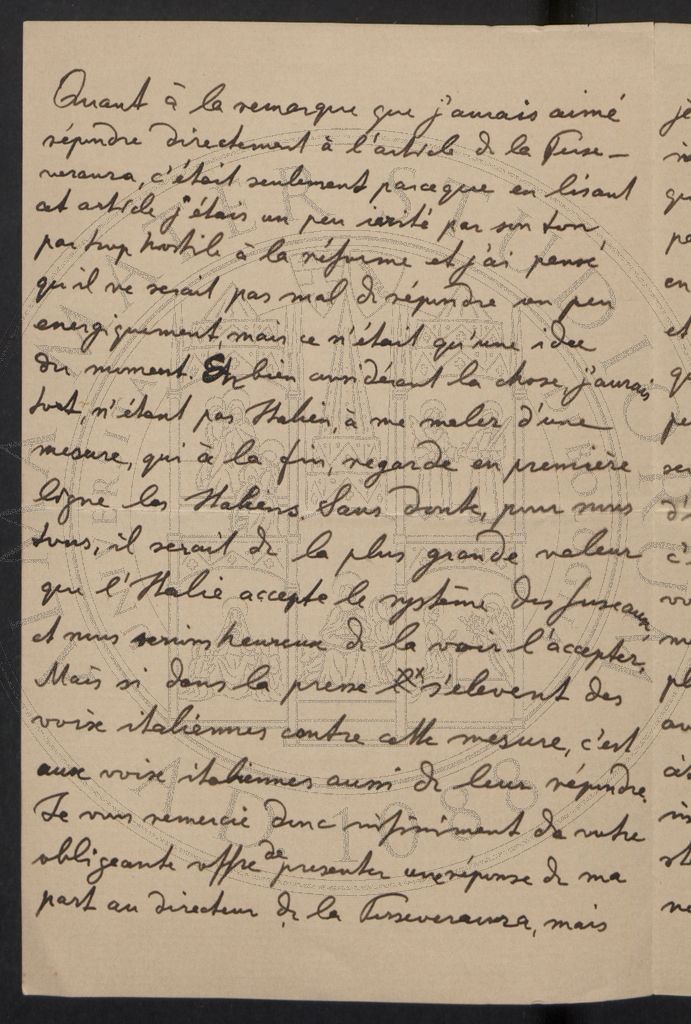 Quant à la remarque que j'aurais aimé
répondre directement à l'article de la Perse-
veranza, c'était seulement parceque en lisant
cet article j'étais un peu irrité par son ton
par trop hostile à la réforme et j'ai pensé
qu'il ne serait pas mal de répondre un peu
energiquement, mais ce n'était qu'une idée
du moment. Et bien considérant la chose, j'aurais
tort, n'étant pas Italien, à me meler d'une
mesure, qui à la fin, regarde en première
ligne les Italiens. Sans doute, pour nous
tous, il serait de la plus grande valeur
que l'Italie accepte le système des fuseaux
et nous serions heureux de la voir l'accepter.
Mais si dans la presse s'elevent des
voix italiennes contre cette mesure, c'est
aux voix italiennes aussi de leur répondre.
Je vous remercie donc infiniment de votre
obligeante offre de presenter une réponse de ma
part au directeur de la Perseveranza, mais
ALMA MATER STUDIORUM
A.D. 1088